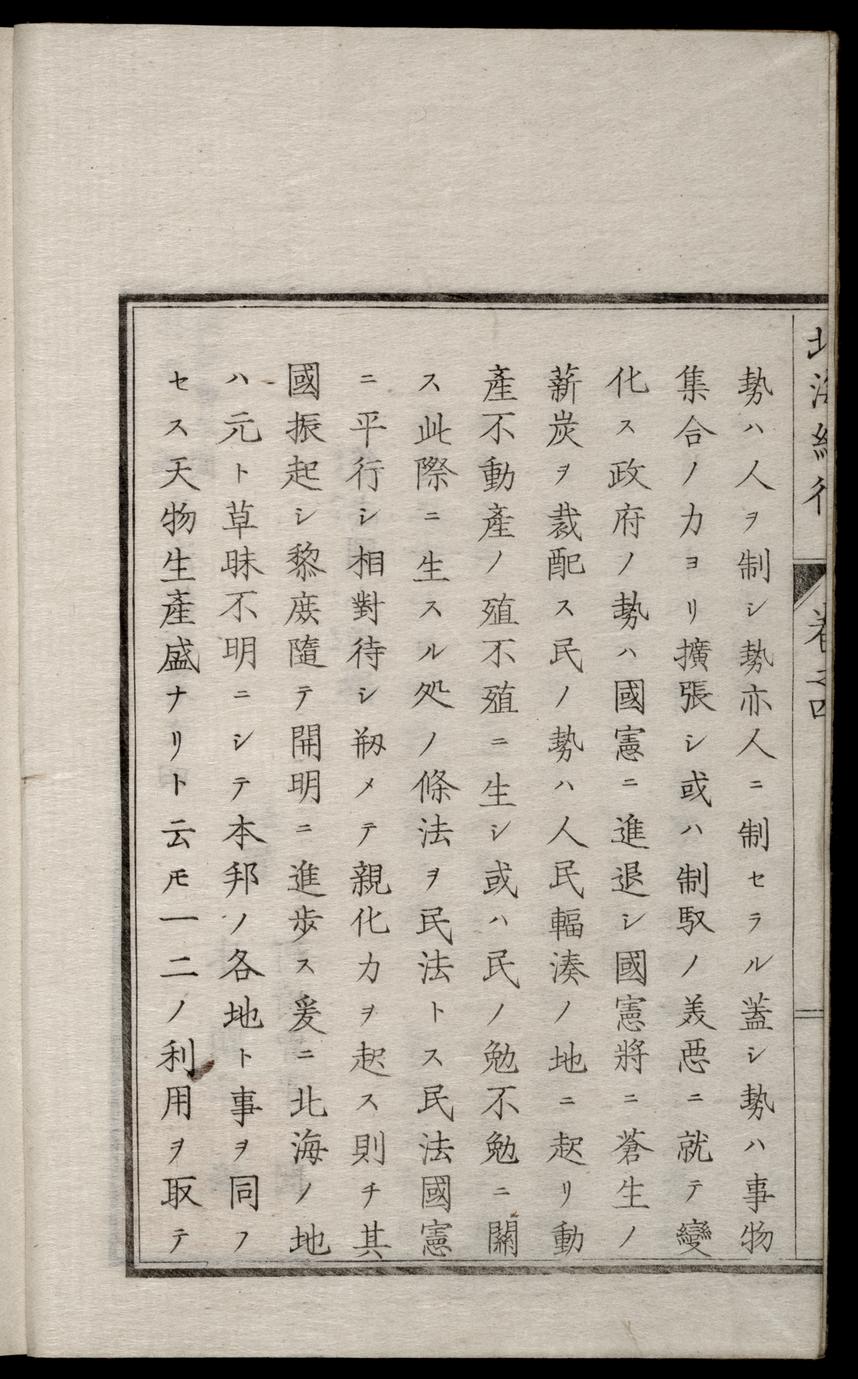 北海紀行 卷之四
勢ハ人ヲ制シ勢亦人ニ制セラル蓋シ勢ハ事物
集合ノ力ヨリ擴張シ或ハ制馭ノ美惡ニ就テ變
化ス政府ノ勢ハ國憲ニ進退シ國憲將ニ蒼生ノ
薪炭ヲ裁配ス民ノ勢ハ人民輻湊ノ地ニ起リ動
產不動產ノ殖不殖ニ生シ或ハ民ノ勉不勉ニ關
ス此際ニ生スル処ノ條法ヲ民法トス民法國憲
ニ平行シ相對待シ剏メテ親化力ヲ起ス則チ其
國振起シ黎庻隨テ開明ニ進歩ス爰ニ北海ノ地
ハ元ト草昧不明ニシテ本邦ノ各地ト事ヲ同フ
セス天物生產盛ナリト云モ一二ノ利用ヲ取テ